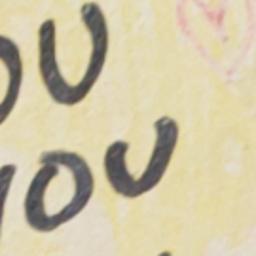 ou
you